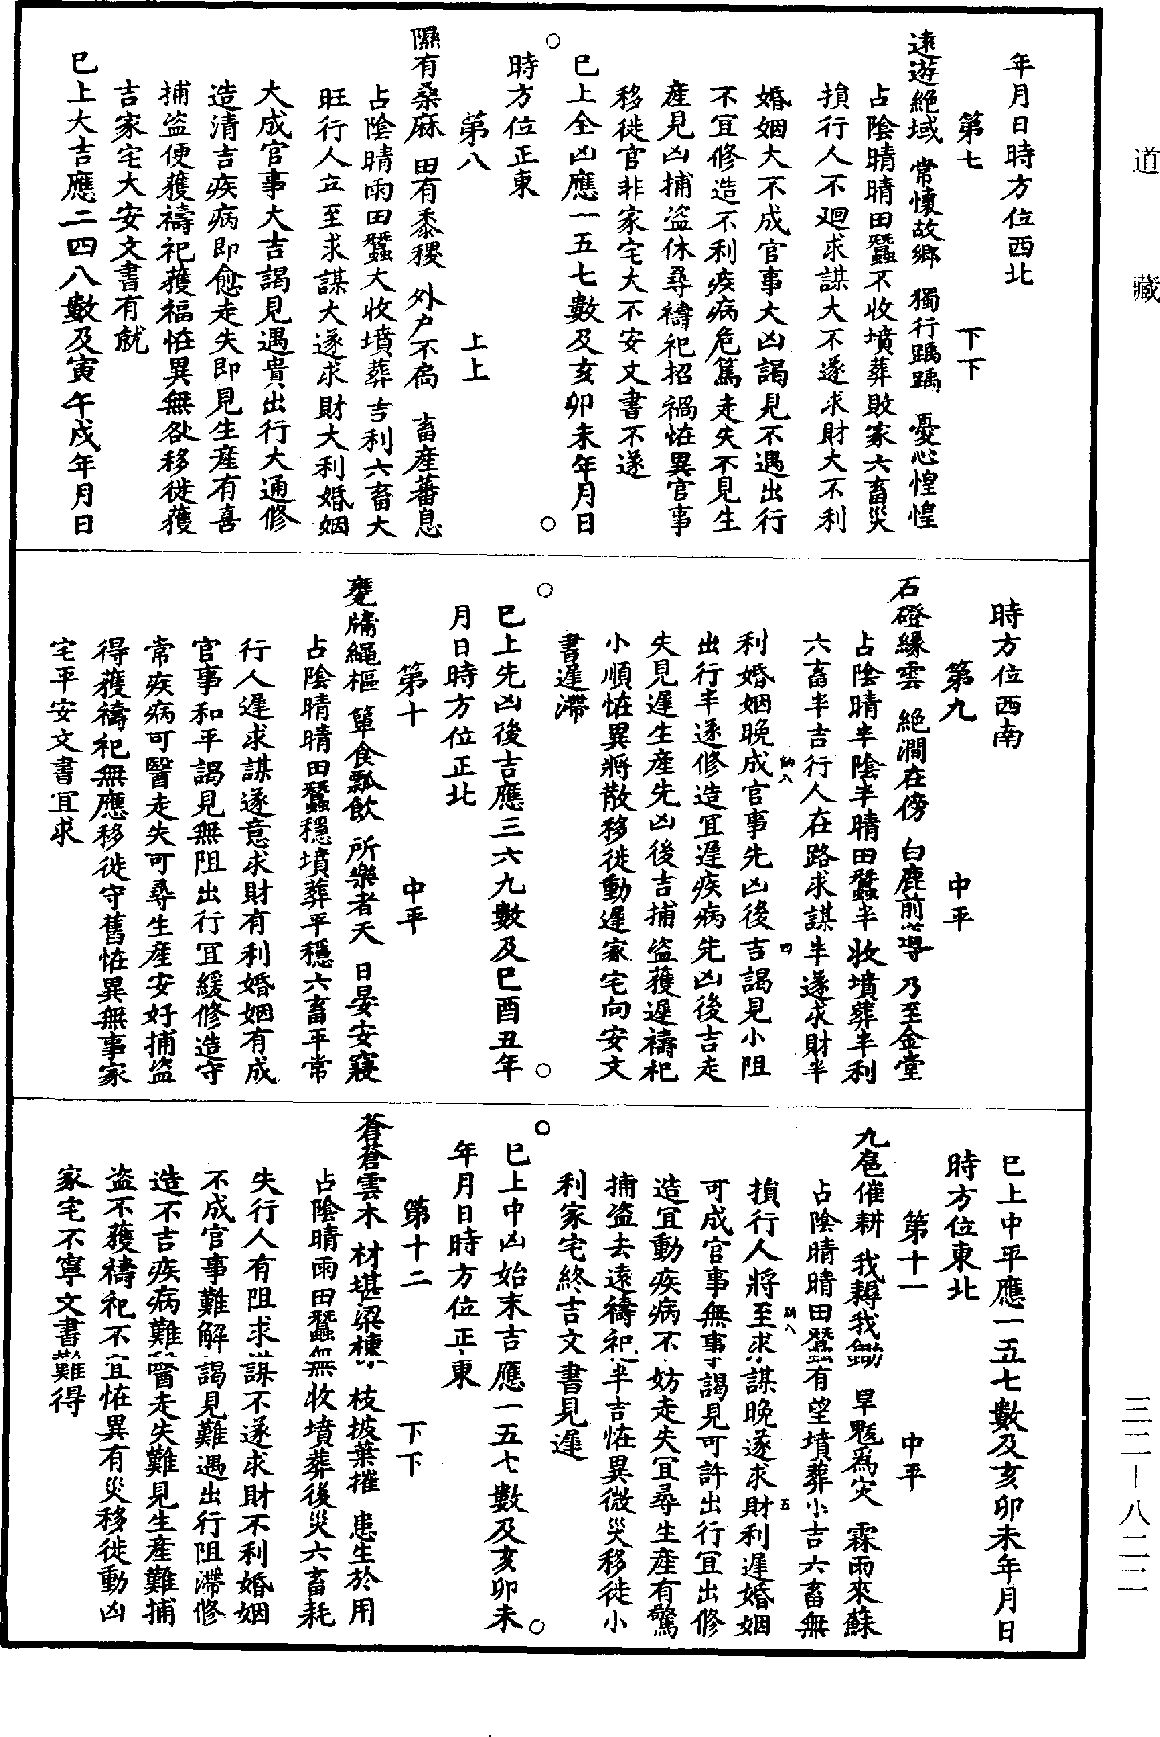 道藏
年月日時方位西北
第七　下下
遠遊絕域　常懷故鄉　獨行踽踽　憂心惶惶
占陰晴晴田蠶不收墳葬敗家六畜災
損行人不迴求謀大不遂求財大不利
婚姻大不成官事大凶謁見不遇出行
不宜修造不利疾病危篤走失不見生
產見凶捕盜休尋禱祀招禍恠異官事
移徙官非家宅大不安文書不遂
巳上全凶應一五七數及亥卯未年月日
時方位正東
第八　上上
隰有桑麻　田有黍稷　外戶不扃　畜產蕃息
占陰晴雨田蠶大收墳葬吉利六畜大
旺行人立至求謀大遂求財大利婚姻
大成官事大吉謁見遇貴出行大通修
造清吉疾病即愈走失即見生產有喜
捕盜便獲禱祀獲福恠異無咎移徙獲
吉家宅大安文書有就
巳上大吉應二四八數及寅午戌年月日
時方位西南
第九　中平
石磴緣雲　絕澗在傍　白鹿前導　乃至金堂
占陰晴半陰半晴田蠶半收墳葬半利
六畜半吉行人在路求謀半遂求財半
利婚姻晚成官事先凶後吉謁見小阻
出行半遂修造宜遲疾病先凶後吉走
失見遲生產先凶後吉捕盜獲遲禱祀
小順恠異將散移徙動遲家宅向安文
書遲滯
巳上先凶後吉應三六九數及巳酉丑年
月日時方位正北
第十　中平
甕牖繩樞　簞食瓢飲　所樂者天　日晏安寢
占陰晴晴田蠶穩墳葬平穩六畜平常
行人遲求謀遂意求財有利婚姻有成
官事和平謁見無阻出行宜緩修造守
常疾病可醫走失可尋生產安好捕盜
得獲禱祀無應移徙守舊恠異無事家
宅平安文書宜求
巳上中平應一五七數及亥卯未年月日
時方位東北
第十一　中平
九扈催耕　我耨我鋤　旱魃為灾　霖雨來蘇
占陰晴晴田蠶有望墳葬小吉六畜無
損行人將至求謀晚遂求財利遲婚姻
可成官事無事謁見可許出行宜出修
造宜動疾病不妨走失宜尋生產有驚
捕盜去遠禱祀半吉恠異微災移徙小
利家宅終吉文書見遲
巳上中凶始末吉應一五七數及亥卯未
年月日時方位正東
第十二　下下
蒼蒼雲木　材堪梁棟　枝披葉摧　患生於用
占陰晴雨田蠶無收墳葬後災六畜耗
失行人有阻求謀不遂求財不利婚姻
不成官事難解謁見難遇出行阻滯修
造不吉疾病難醫走失難見生產難捕
盜不獲禱祀不宜恠異有災移徙動凶
家宅不寧文書難得
三二—八二三